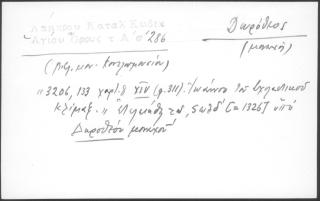 Λάμπρου Καταλ Κωδίκ
Αγίου Όρους τ Α΄ σ΄ 286
Δωρόθεος
(μοναχός)
(Βιβ. μον. Κουτλουμουσίου)
"3206, 133 χαρτ. 8 XIV (φ. 311). Ἰωάννου τοῦ Σχολαστικοῦ
Κλίμαξ." Ἐγράφη τῷ ͵ςωλδ΄ [= 1326] ὑπὸ
Δωροθέου μοναχοῦ